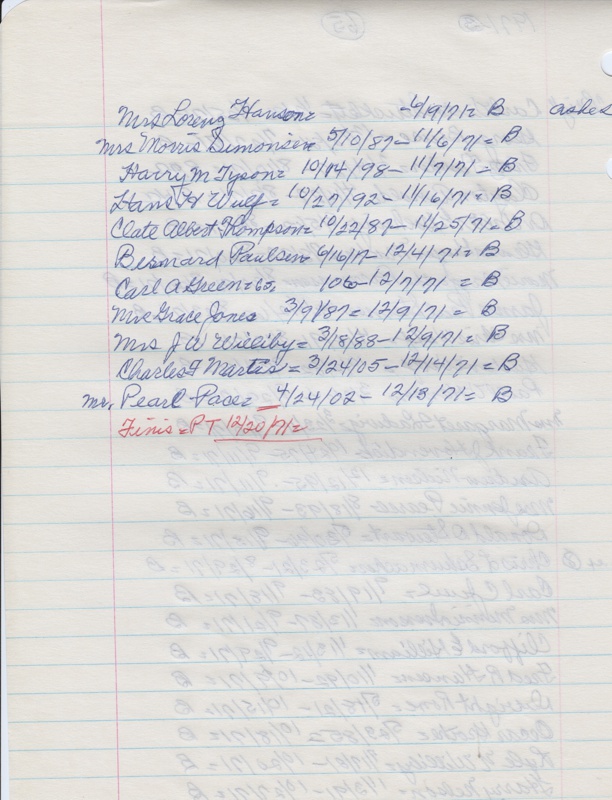 Mrs Lorenz Hanson= -6/9/71= B ashes
Mrs Morris Simonsen= 5/10/87-11/6/71=B
Harry M Tyson= 10/14/98-11/7/71=B
Hans H Wulf= 10/27/92-11/16/71=B
Clate Albert Thompson=10/22/87-11/25/71=B
Bernard Paulsen- 6/16/17-12/4/71= B
Carl A Green=65, 1906-12/7/71 = B
Mrs Grace Jones 3/9/87= 12/9/71= B
Mrs J W Willeby=3/18/88-12/9/71=B
Charles F Martis = 3/24/05-12/14/71=B
Mr. Pearl Pace= 4/24/02-12/13/71= B
Finis=PT 12/20/71=